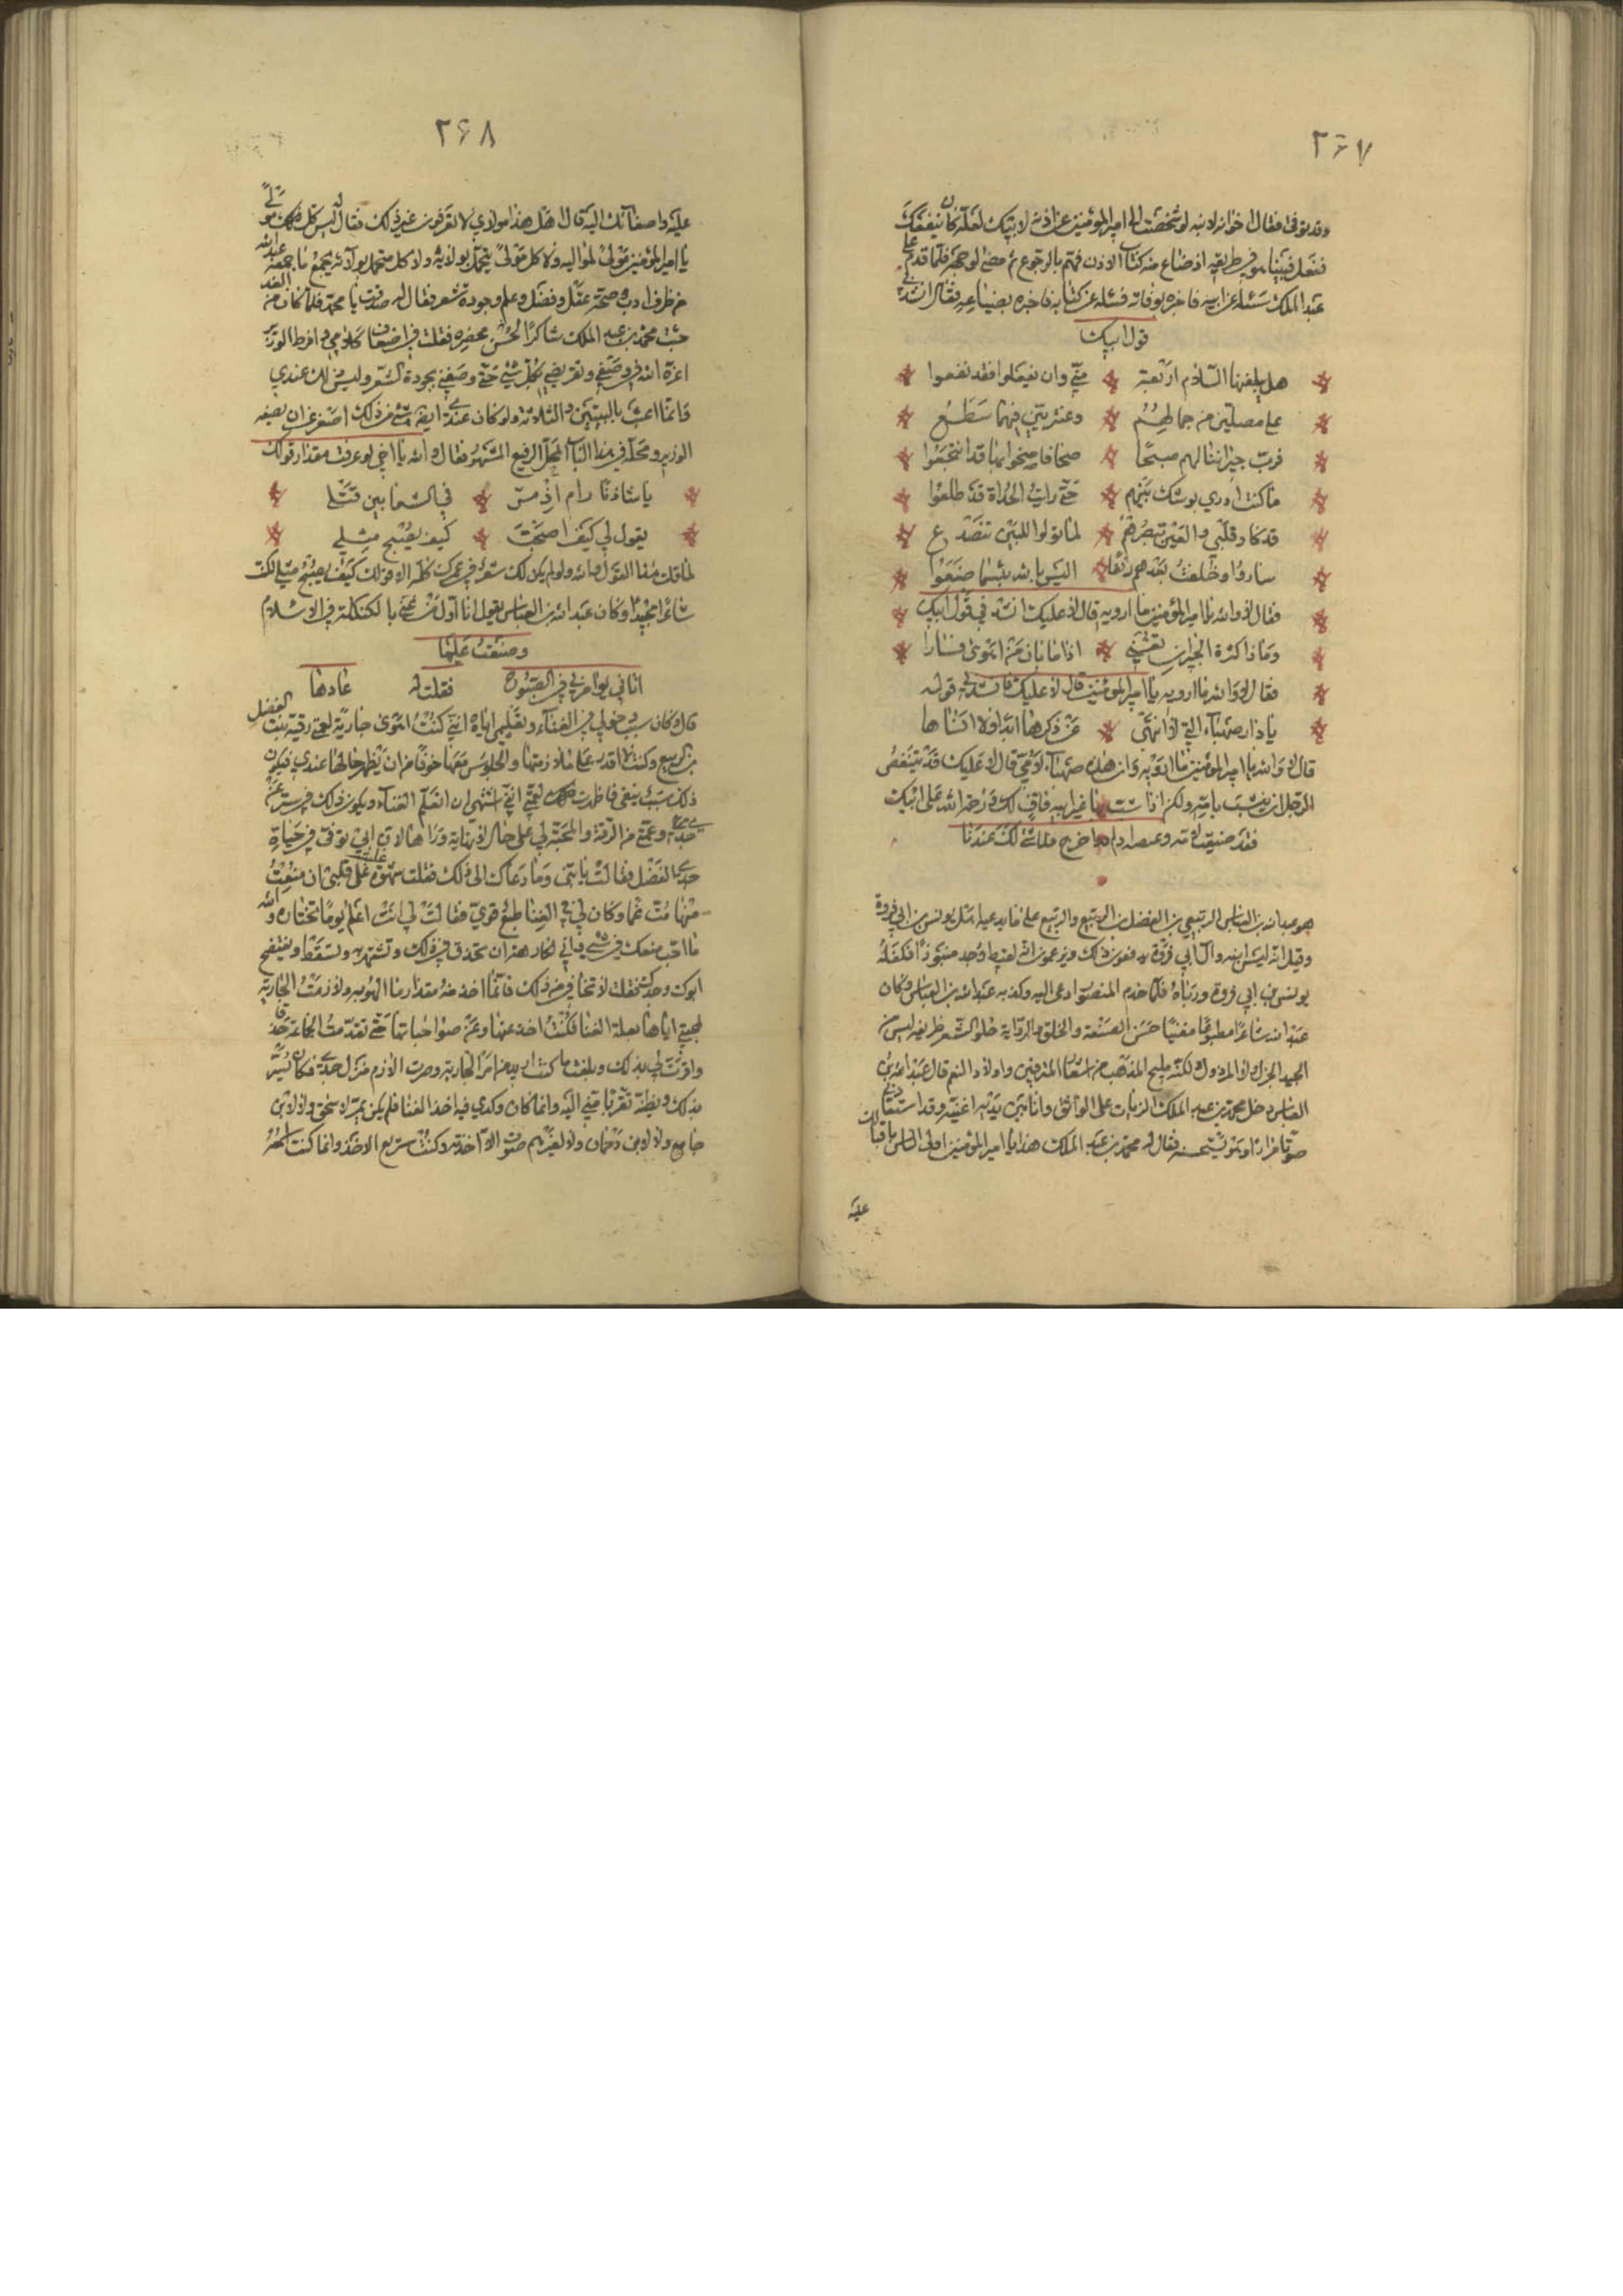 ٢٦٧
وقد توفي فقال اخوانه لابنه لو شخصت الى امير المؤمنين عن اذنه لابيك لعله كان ينفعك
ففعل فبينا هو في طريقه اذ ضاع منه كتاب الاذن فهم بالرجوع ثم مضى لوجهه فلما قدم على
عبد الملك سئله عن ابيه فاخبره بوفاته فسئله عن كتابه فاخبره بضياعه فقال انشدني
قول ابيك
هل يبلغنها السلام اربعة مني وان يفعلوا فقد نفعوا
على مصلين من جمالهم وعنتريسين فيهما سطع
قرب جيراننا جمالهم صبحا فاضحوا بها قد انتجعوا
ما كنت ادري بوشك بينهم حتى رايت الحداة قد طلعوا
قد كاد قلبي والعين تبصرهم لما تولوا للبين تنصدع
ساروا وخلفت بعدهم دنفا اليس بالله بئسما صنعوا
فقال لا والله يا امير المؤمنين ما ارويه قال لا عليك انشدني قول ابيك
وماذا كثرة الجيران تغني اذا ما بان من اهوى فسارا
فقال لا والله ما ارويه يا امير المؤمنين قال لا عليك فانشدني قوله
يا دار صهباء التي لا انتهي عن ذكرها ابدا ولا انساها
قال لا والله يا امير المؤمنين ما ارويه وان هذه صهباء لامي قال لا عليك قد يبغض
الرجل ان يشبب بامه ولكن اذا شبب بها غير ابيه فاف لك ورحمة الله على ابيك
فقد ضيعت ادبه وعصيت امره اخرج فلا شئ لك عندنا
هو عبد الله بن العباس الربيعي بن الفضل بن الربيع والربيع على ما يدعيه اهله بن يونس بن ابي فروة
وقيل انه ليس ابنه وآل ابي فروة يدفعون ذلك ويزعمون انه لقيط وجد منبوذا فكفله
يونس بن ابي فروة ورباه فلما خدم المنصور ادعى اليه وكذبه عبد الله بن العباس وكان
عبد الله شاعرا مطبوعا مغنيا حسن الصنعة والخلق والرواية حلو الشعر ظريفه ليس من
الجيد الجزل ولا المرذول ولكنه مليح المذهب من اشعار المترفين واولاد النعم قال عبد الله بن
العباس دخل محمد بن عبد الملك الزيات على الواثق وانا بين يديه اغنيه وقد استعادني
صوتا مرارا وهو يستحسنه فقال له محمد بن عبد الملك هذا يا امير المؤمنين اولى الناس باقبالك
عليه
٢٦٨
عليه واصغائك اليه قال اجل هذا مولاي لا تعرفون غير ذلك فقال له ليس كل مولى
يا امير المؤمنين مولى لمواليه ولا كل مولى يتجمل بولائه ولا كل متجمل بولائه يجمع ما جمعه عبد الله
من ظرف وادب وصحة عقل وفضل وعلم وجودة شعر فقال له صدقت يا محمد فلما كان من الغد
جئت محمد بن عبد الملك شاكرا لحسن محضره فقلت في اضعاف كلامي وافرط الوزير
اعزه الله في وصفي وتقريضي بكل شئ حتى وصفني بجودة الشعر وليس ذلك عندي
وانما اعبث بالبيتين والثلاثة ولو كان عندي ايضا شئ من ذلك لصغر عن ان يصفه
الوزير ومحله في هذا الباب المحل الرفيع المشهور فقال والله يا اخي لو عرفت مقدار قولك
يا شادنا رام اذ مر في الشعانين قتلي
يقول لي كيف اصبحت كيف يصبح مثلي
لما قلت هذا القول والله ولو لم يكن لك شعر في عمرك كله الا قولك كيف يصبح مثلي لكنت
شاعرا مجيدا وكان عبد الله بن العباس يقول انا اول من غنى بالكنكلة في الاسلام
وصنعت عليها
اتاني يوامرني في الصبوح فقلت له غادها
قال وكان سبب دخولي في الغناء وتعليمي اياه اني كنت اهوى جارية لعمتي رقية بنت الفضل
بن الربيع وكنت لا اقدر على ملازمتها والجلوس معها خوفا من ان يظهر مالها عندي فيكون
ذلك سبب منعي فاظهرت لعمتي انني اشتهي ان اتعلم الغناء ويكون ذلك في ستر عن
جدي وعمتي من الرقة والمحبة لي على حال لا نهاية وراها لان ابي توفى في حياة
جدي الفضل فقالت يا بني وما دعاك الى ذلك فقلت شهوة غلبت على قلبي ان منعت
منها مت غما وكان لي في الغنا طبع قوي فقالت لي انت اعلم وما تختاره والله
ما احب منعك من شئ واني لكارهة ان تحذق في ذلك وتشتهر به وتسقط ويفتضح
ابوك وجدك فقلت لا تخافي من ذلك فانما اخذ منه مقدار ما الهو به ولازمت الجارية
لمحبتي اياها بعلة الغنا فكنت اخذ عنها وعن صواحباتها حتى تقدمت الجماعة حذقا
واقرت لي بذلك وبلغت ما كنت اريد من امر الجارية وصرت الازم منزل جدي فكان يسر
بذلك ويظنه تقربا مني اليه وانما كان وكدي فيه اخذ الغنا فلم يكن يمر لاسحق ولا لابن
جامع ولا لابن دحمان ولا لغيرهم صوت الا اخذته وكنت سريع الاخذ وانما كنت اسمعه